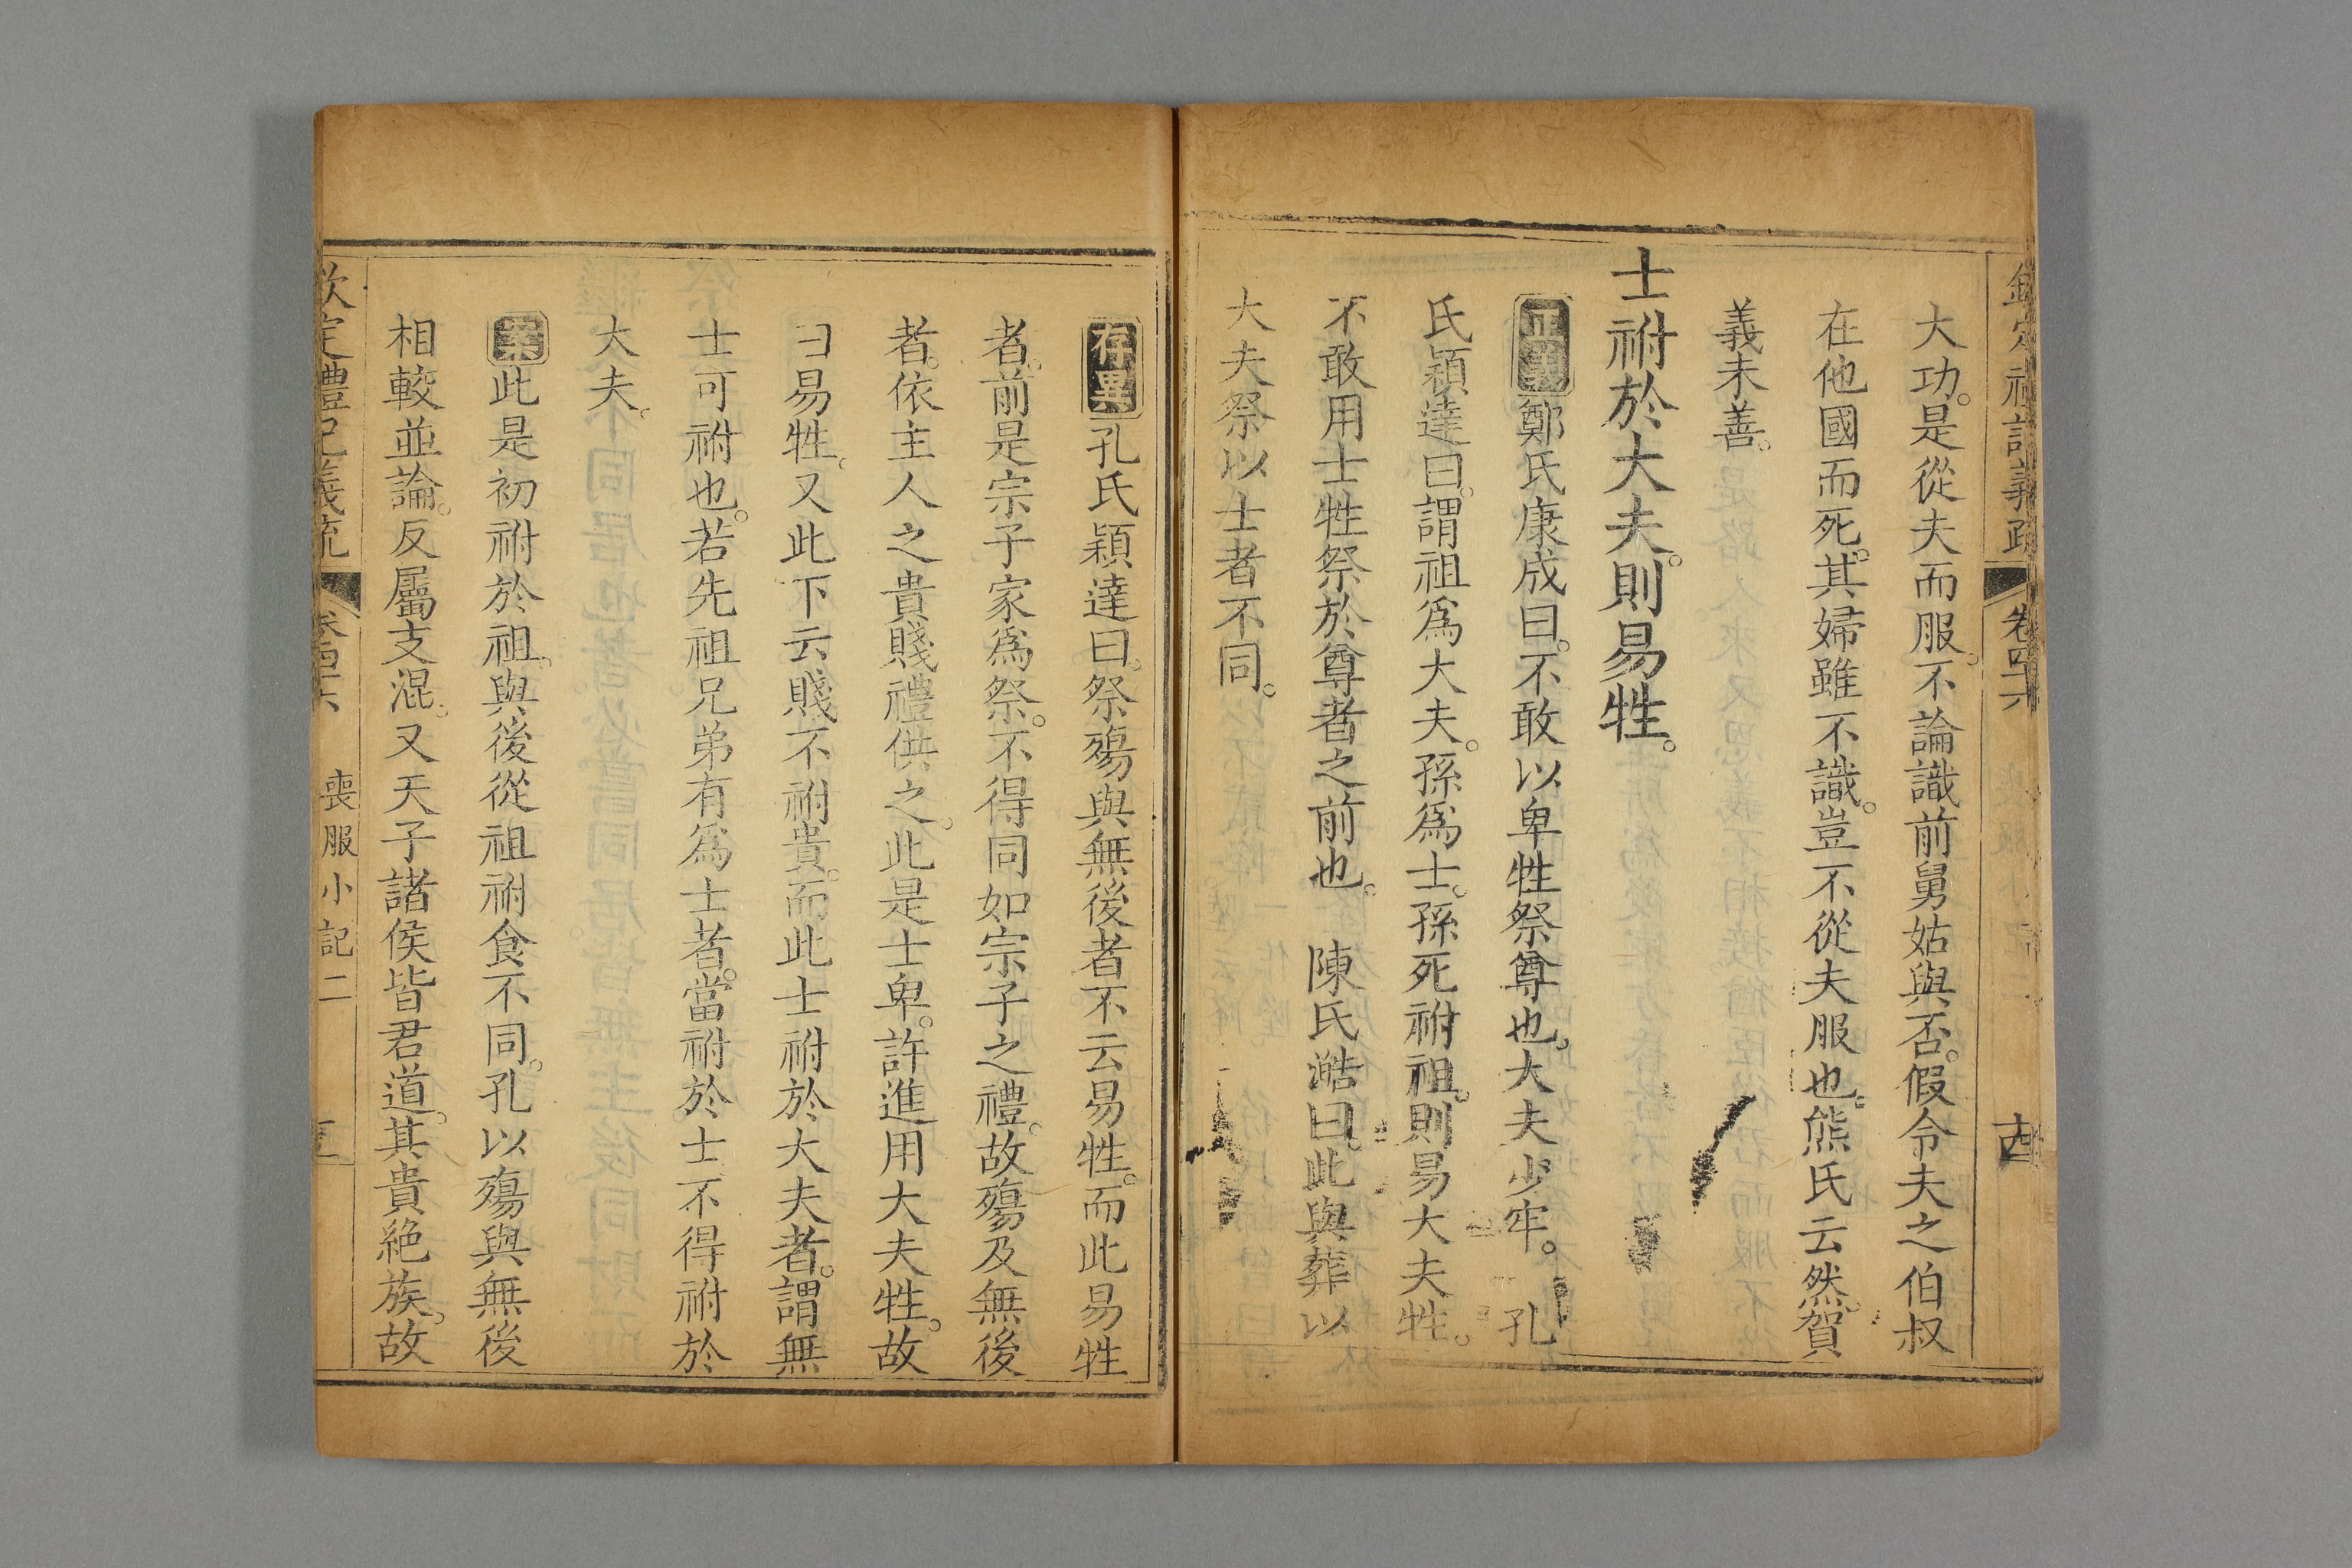 欽定禮記義疏 卷四十六 十四
大功。是從夫而服。不論識前舅姑與否。假令夫之伯叔
在他國而死。其婦雖不識。豈不從夫服也。熊氏云然。賀
義未善。
士祔於大夫。則易牲。
正義鄭氏康成曰。不敢以卑牲祭尊也。大夫少牢。 孔
氏穎達曰。謂祖為大夫。孫為士。孫死祔祖。則易大夫牲。
不敢用士牲祭於尊者之前也。 陳氏澔曰。此與葬以
大夫祭以士者不同。
存異孔氏穎達曰。祭殤與無後者不云易牲。而此易牲
者。前是宗子家為祭。不得同如宗子之禮。故殤及無後
者。依主人之貴賤禮供之。此是士卑。許進用大夫牲。故
曰易牲。又此下云賤不祔貴。而此士祔於大夫者。謂無
士可祔也。若先祖兄弟有為士者。當祔於士不得祔於
大夫。
案此是初祔於祖。與後從祖祔食不同。孔以殤與無後
相較並論。反屬支混。又天子諸侯皆君道。其貴絕族。故
欽定禮記義疏 卷四十六 喪服小記二